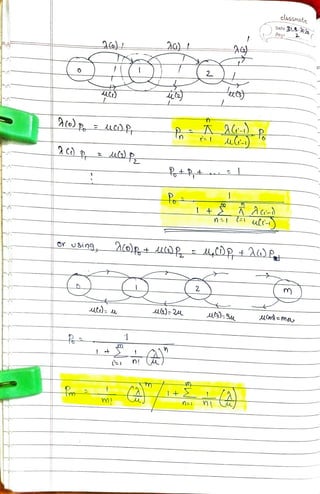 classmate
Date
Page
λ(0) λ(1) λ(2)
0 1 2
μ(1) μ(2) μ(3)
λ(0) P₀ = μ(1) P₁
Pₙ = π i=1 n λ(i-1)/μ(i-1) · P₀
λ(1) P₁ = μ(2) P₂
⋮
P₀ + P₁ + .... = 1
P₀ = 1 / (1 + Σ n=1 ∞ π i=1 n λ(i-1)/μ(i-1))
or using, λ(0)P₀ + μ(2)P₂ = μ(1)P₁ + λ(1)P₁
0 1 2 m
μ(1)= μ μ(2)= 2μ μ(3)= 3μ μ(m)= mμ
P₀ = 1 / (1 + Σ i=1 m 1/n! (λ/μ)ⁿ)
Pₘ = 1/m! (λ/μ)ᵐ / 1 + Σ n=1 m 1/n! (λ/μ)